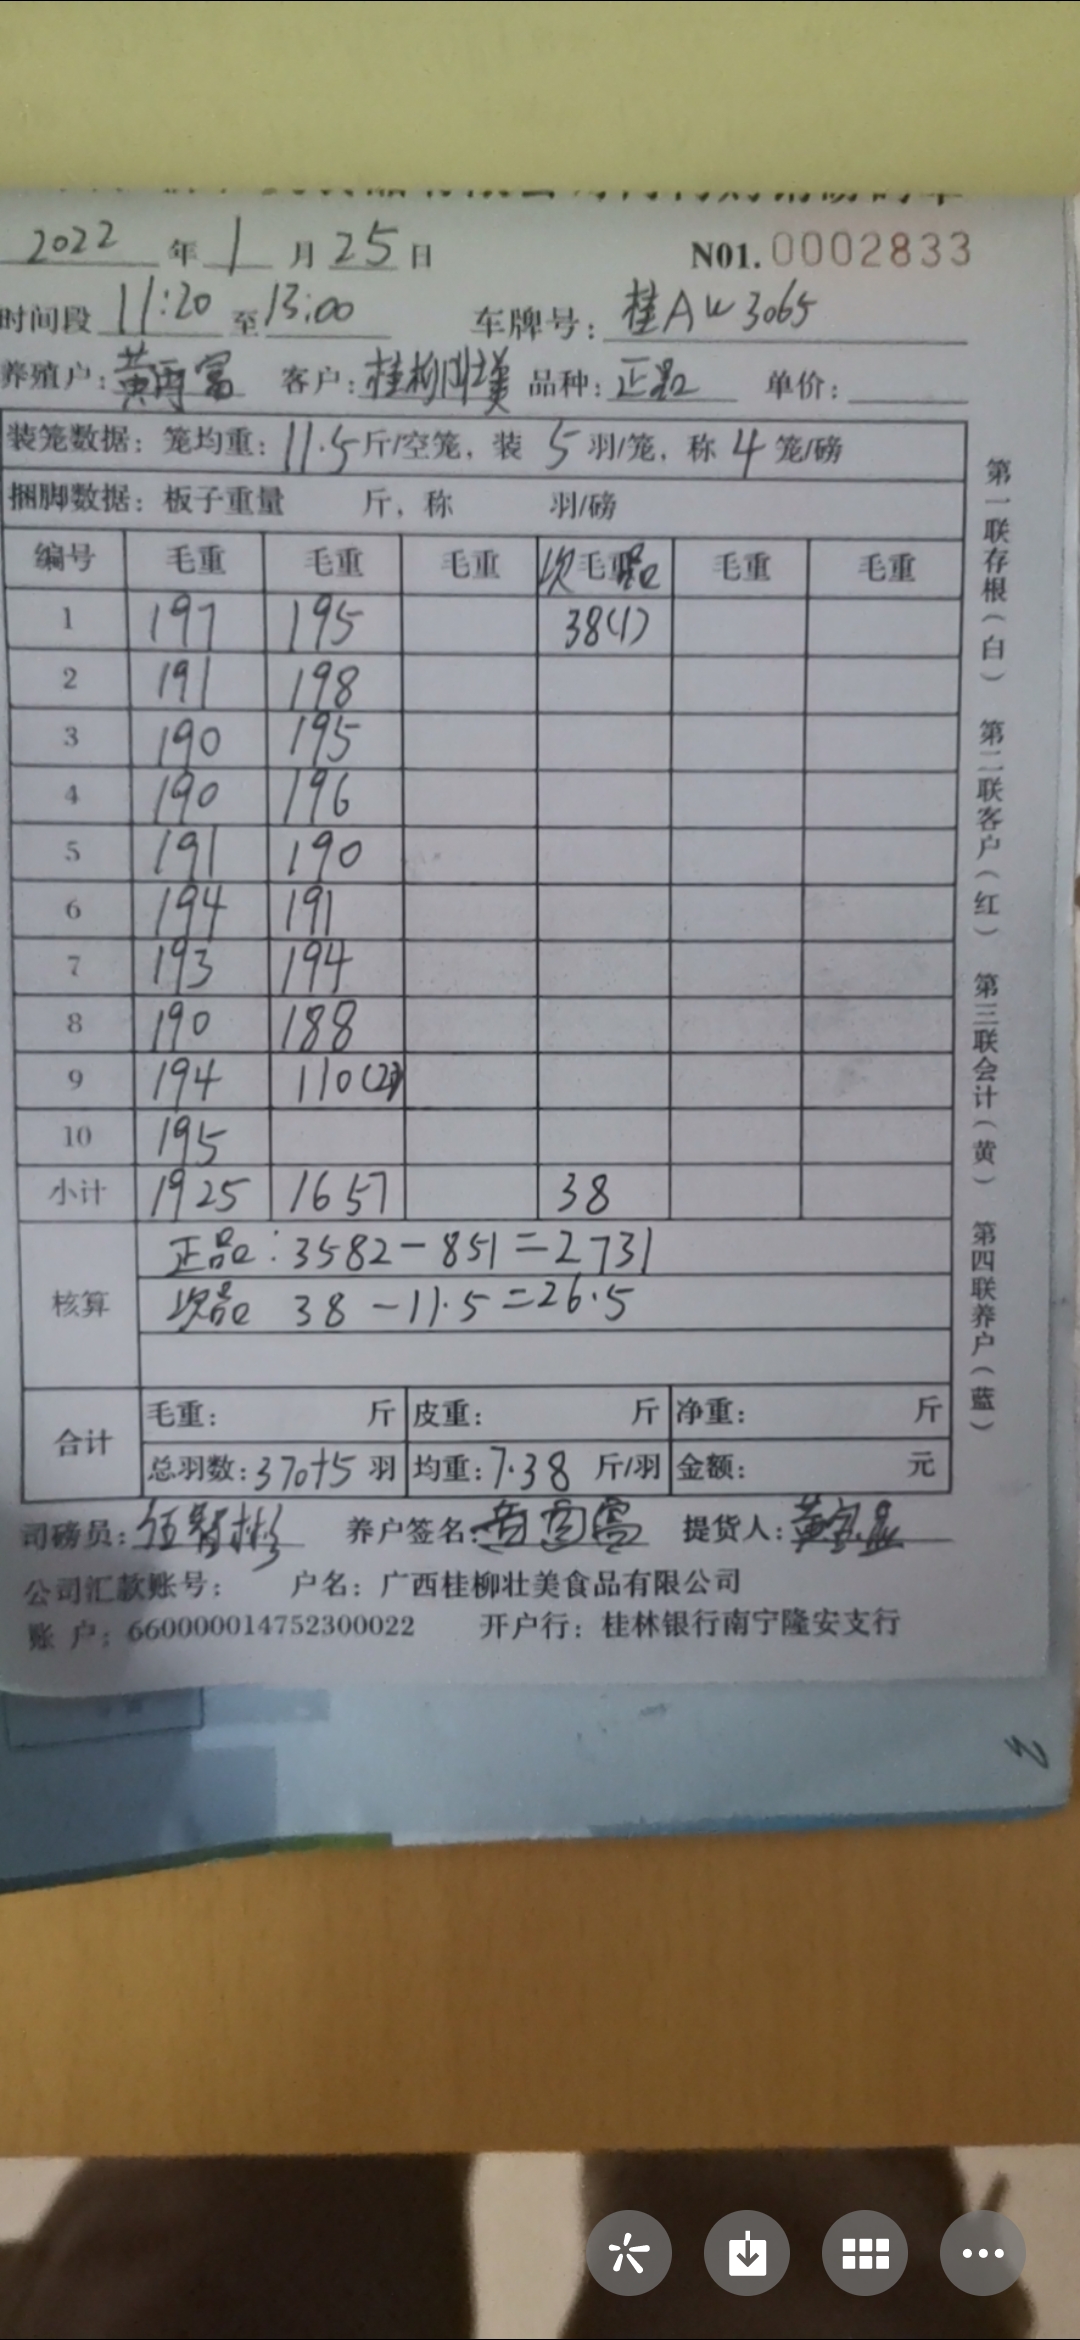 2022 年 1 月 25 日 N01. 0002833
时间段 11:20 至 13:00 车牌号: 桂AW3065
养殖户: 黄 富 客户: 桂柳壮美 品种: 正品 单价:
装笼数据: 笼均重: 11.5 斤/空笼, 装 5 羽/笼, 称 4 笼/磅
捆脚数据: 板子重量 斤, 称 羽/磅
编号 毛重 毛重 毛重 次毛重品 毛重 毛重
1 197 195 38(1)
2 191 198
3 190 195
4 190 196
5 191 190
6 194 191
7 193 194
8 190 188
9 194 110
10 195
小计 1925 1657 38
核算 正品: 3582-851=2731
次品 38-11.5=26.5
合计 毛重: 斤 皮重: 斤 净重: 斤
总羽数: 370+5 羽 均重: 7.38 斤/羽 金额: 元
司磅员: 养户签名: 提货人:
公司汇款账号: 户名: 广西桂柳壮美食品有限公司
账 户: 660000014752300022 开户行: 桂林银行南宁隆安支行
第一联存根(白) 第二联客户(红) 第三联会计(黄) 第四联养户(蓝)